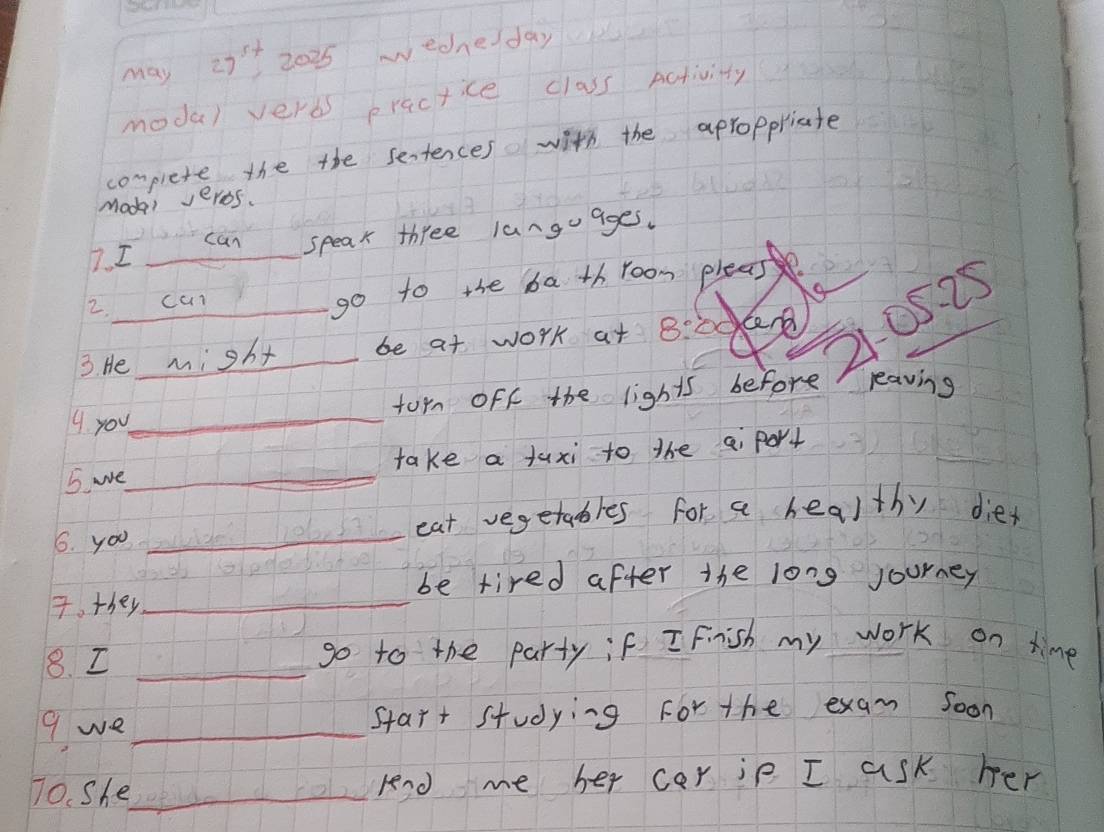 may 21st, 2025 wednesday
modal verbs practice class Activity
complete the the sentences with the aproppriate
Modal verbs.
1. I can speak three languages.
2. can go to the bathroom please.
3. He might be at work at 8:00
21-05-25
4. you turn off the lights before leaving
5. we take a taxi to the aiport
6. you eat vegetables for a healthy diet
7. they be tired after the long journey
8. I go to the party if I finish my work on time
9. we start studying for the exam soon
10. She lend me her car if I ask her